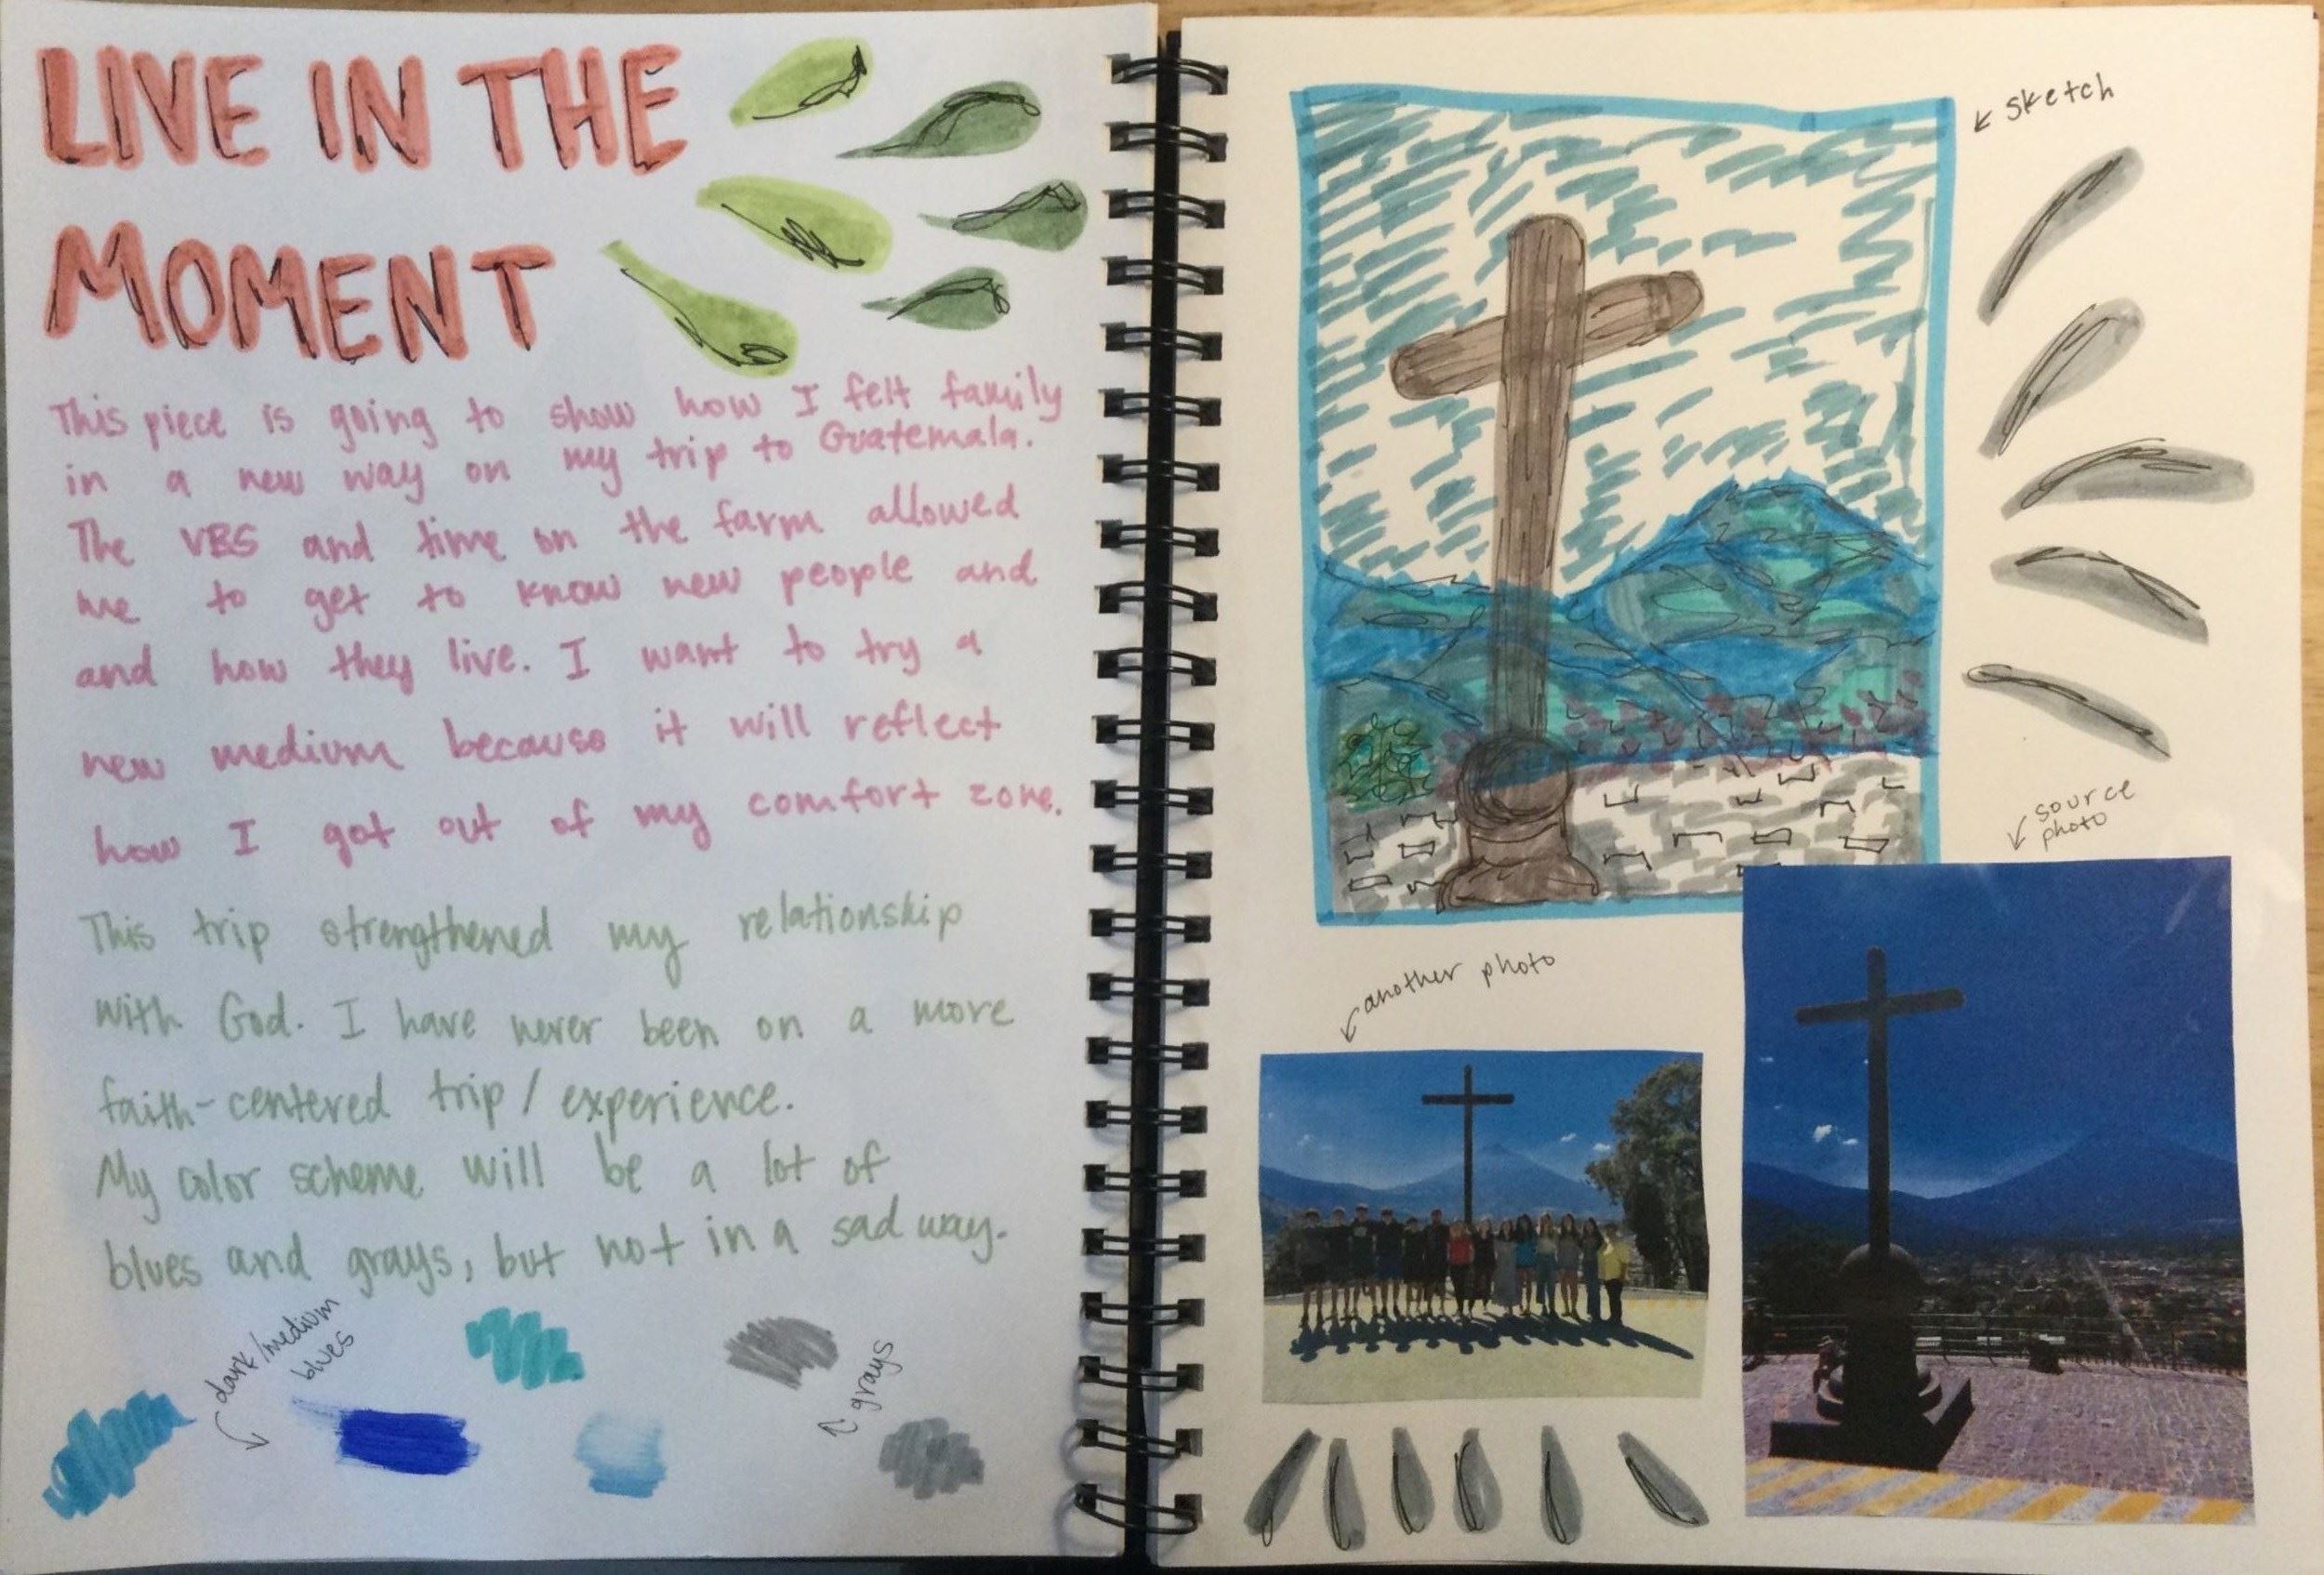 LIVE IN THE
MOMENT
This piece is going to show how I felt family
in a new way on my trip to Guatemala.
The VBS and time on the farm allowed
me to get to know new people and
and how they live. I want to try a
new medium because it will reflect
how I got out of my comfort zone.
This trip strengthened my relationship
with God. I have never been on a more
faith-centered trip/experience.
My color scheme will be a lot of
blues and grays, but not in a sad way.
dark/medium
blues
grays
sketch
source
photo
another photo